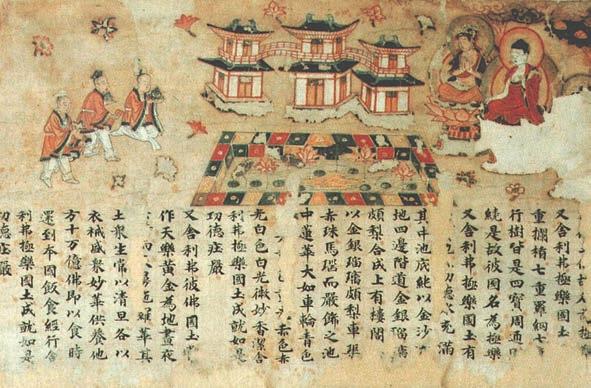 又舍利弗極樂國土
重欄楯七重羅網七
行樹皆是四寶周迊
繞是故彼國名為極樂
又舍利弗極樂國土有
功德充滿
其中池底純以金沙
地四邊階道金銀瑠璃
頗梨合成上有樓閣
以金銀瑠璃頗梨車磲
赤珠馬瑙而嚴飾之池
中蓮華大如車輪青色
赤色赤
光白色白光微妙香潔舍
利弗極樂國土成就如是
功德莊嚴
又舍利弗彼佛國土
作天樂黃金為地晝夜
華其
土衆生常以清旦各以
衣裓盛衆妙華供養他
方十万億佛即以食時
還到本國飯食經行舍
利弗極樂國土成就如是
功德莊嚴